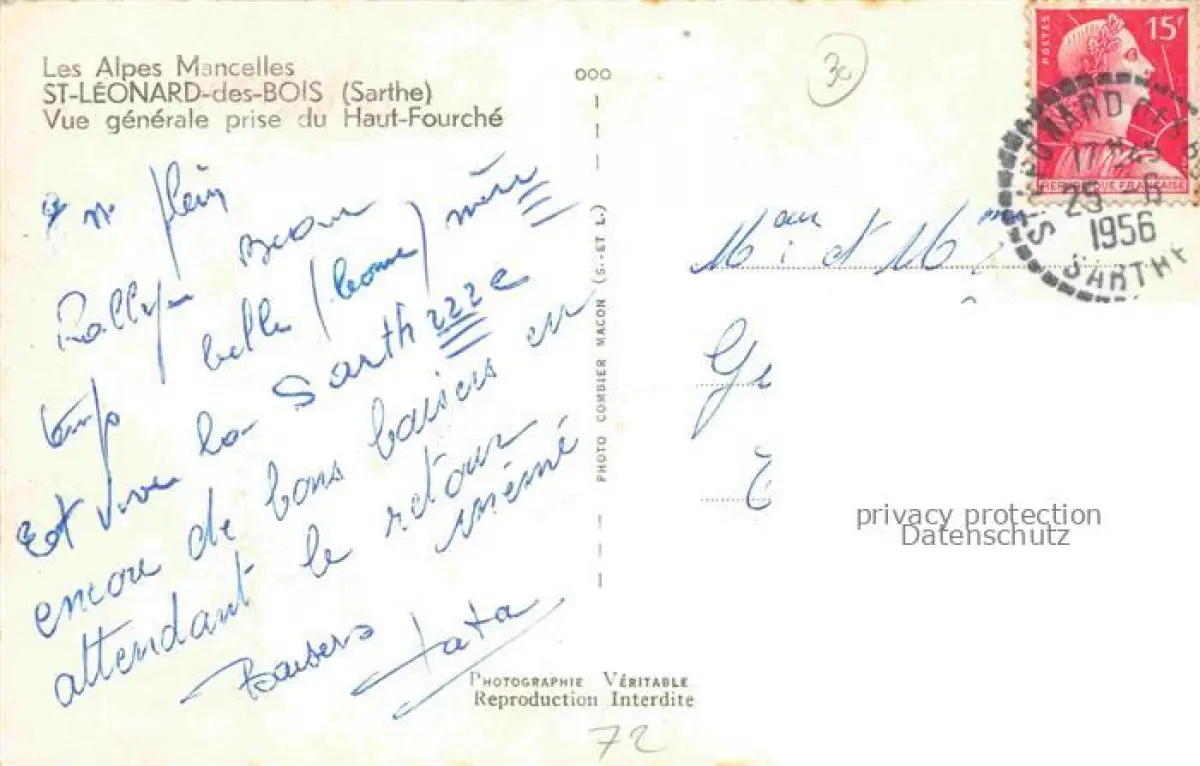 Les Alpes Mancelles
ST-LÉONARD-des-BOIS (Sarthe)
Vue générale prise du Haut-Fourché
ooo
3c
15f
POSTES
REPUBLIQUE FRANÇAISE
ST LEONARD DES B IS
25 -6
1956
SARTHE
plein
Rallye Beau
temps belle (bonne) mère
Et vive la Sarthzzze
encore de bons baisers en
attendant le retour
mémé
Baisers tata
PHOTO COMBIER MACON (S.-ET L.)
M et M
Ge
PHOTOGRAPHIE VÉRITABLE
Reproduction Interdite
72
privacy protection
Datenschutz